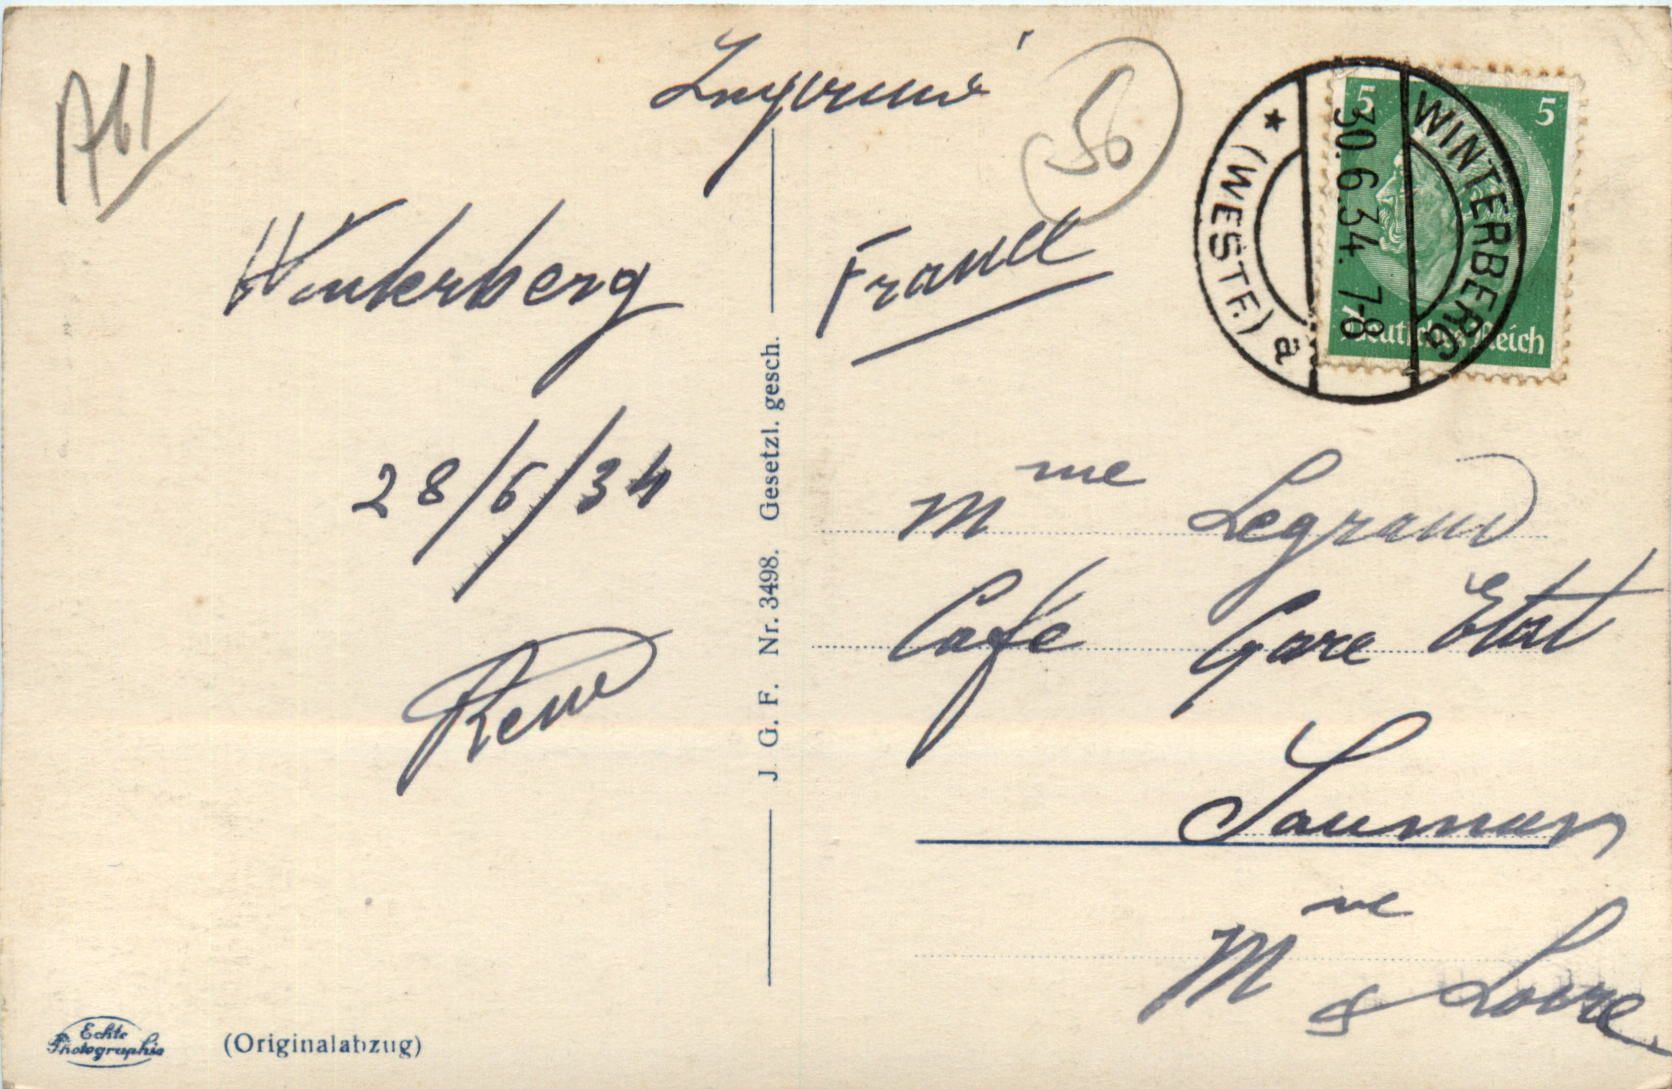 A61
Imprimé
56
Winterberg
28/6/34
René
France
5
5
Deutsches Reich
WINTERBERG
* (WESTF.) a
30.6.34. 7-8
Mme Legrand
Café Gare Etat
Saumur
Mne & Loire
J. G. F. Nr. 3498. Gesetzl. gesch.
Echte
Photographie
(Originalabzug)